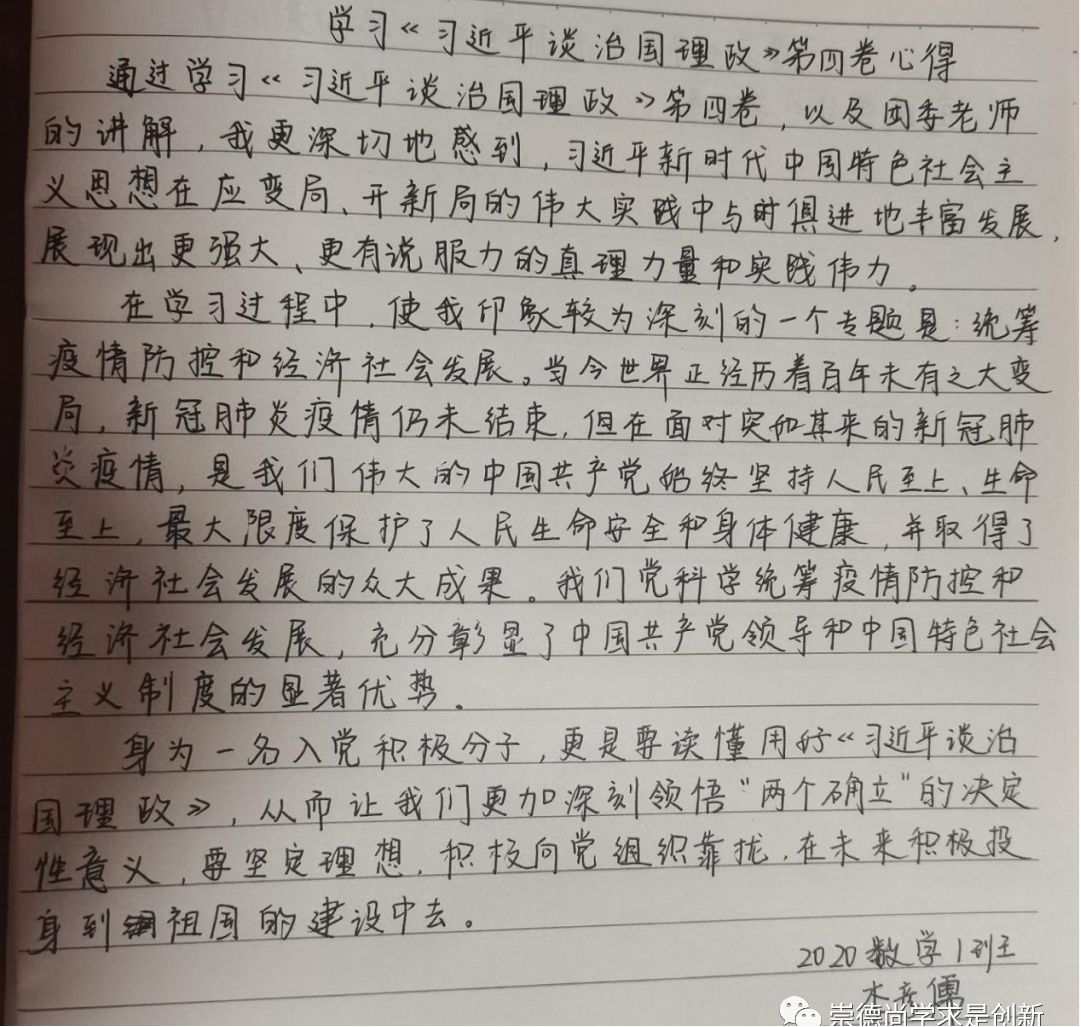 学习《习近平谈治国理政》第四卷心得
通过学习《习近平谈治国理政》第四卷，以及团委老师
的讲解，我更深切地感到，习近平新时代中国特色社会主
义思想在应变局、开新局的伟大实践中与时俱进地丰富发展，
展现出更强大、更有说服力的真理力量和实践伟力。
在学习过程中，使我印象较为深刻的一个专题是：统筹
疫情防控和经济社会发展。当今世界正经历着百年未有之大变
局，新冠肺炎疫情仍未结束，但在面对突如其来的新冠肺
炎疫情，是我们伟大的中国共产党始终坚持人民至上、生命
至上，最大限度保护了人民生命安全和身体健康，并取得了
经济社会发展的众大成果。我们党科学统筹疫情防控和
经济社会发展，充分彰显了中国共产党领导和中国特色社会
主义制度的显著优势。
身为一名入党积极分子，更是要读懂用好《习近平谈治
国理政》，从而让我们更加深刻领悟"两个确立"的决定
性意义，要坚定理想，积极向党组织靠拢，在未来积极投
身到祖国的建设中去。
2020数学1班王
崇德尚学求是创新